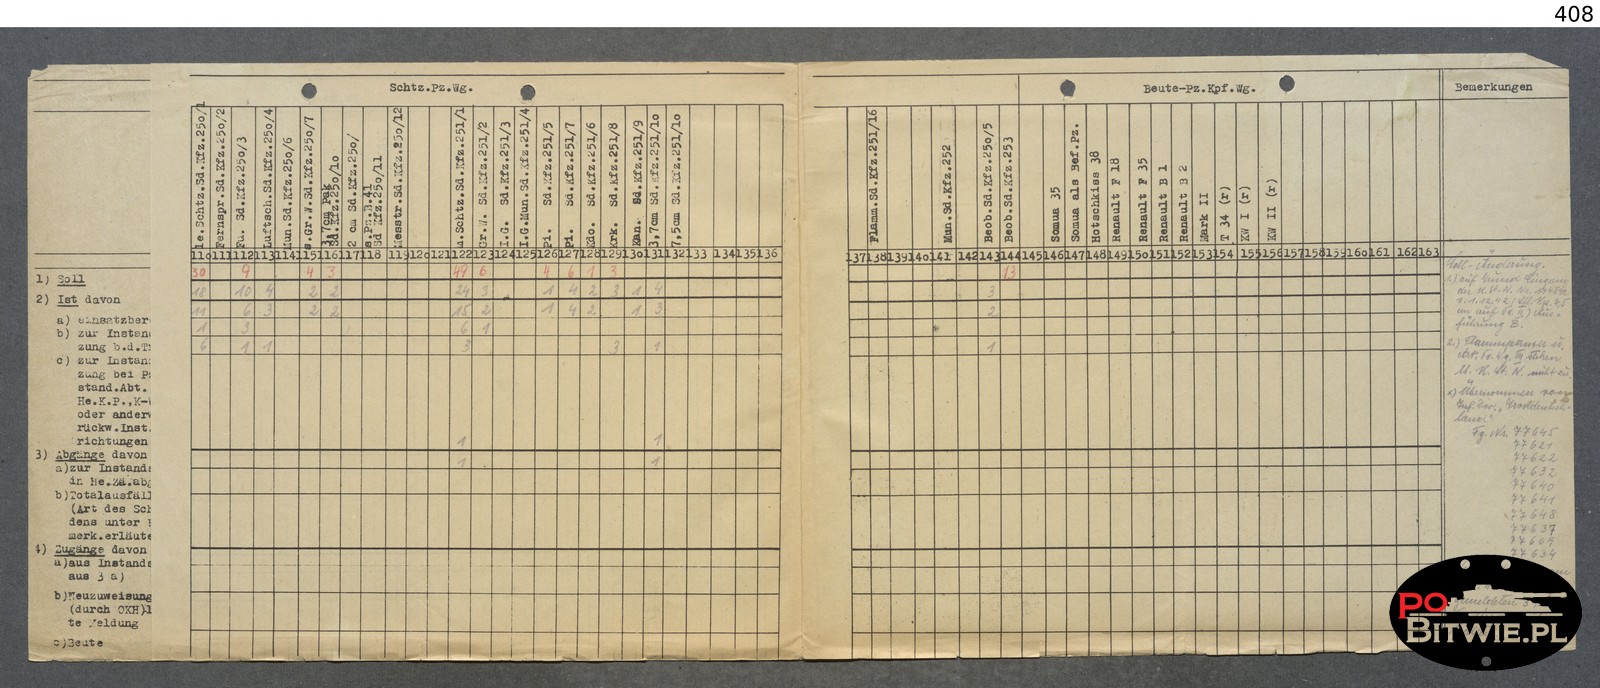 408
Schtz.Pz.Wg.
Beute-Pz.Kpf.Wg.
Bemerkungen
le.Schtz.Sd.Kfz.250/1
Fernspr.Sd.Kfz.250/2
Fu. Sd.Kfz.250/3
Luftsch.Sd.Kfz.250/4
Mun.Sd.Kfz.250/6
s.Gr.W.Sd.Kfz.250/7
3,7cm Pak
Sd.Kfz.250/10
2 cm Sd.Kfz.250/
s.Pz.B.41
Sd Kfz.250/11
Messtr.Sd.Kfz.250/12
m.Schtz.Sd.Kfz.251/1
Gr.W. Sd.Kfz.251/2
I.G. Sd.Kfz.251/3
I.G.Mun.Sd.Kfz.251/4
Pi. Sd.Kfz.251/5
Pi. Sd.Kfz.251/7
Kdo. Sd.Kfz.251/6
Krk. Sd.Kfz.251/8
Kan. Sd.Kfz.251/9
3,7cm Sd.Kfz.251/10
7,5cm Sd.Kfz.251/10
Flamm.Sd.Kfz.251/16
Mun.Sd.Kfz.252
Beob.Sd.Kfz.250/5
Beob.Sd.Kfz.253
Somua 35
Somua als Bef.Pz.
Hotschkiss 38
Renault F 18
Renault F 35
Renault B 1
Renault B 2
Mark II
T 34 (r)
KW I (r)
KW II (r)
110 111 112 113 114 115 116 117 118 119 120 121 122 123 124 125 126 127 128 129 130 131 132 133 134 135 136 137 138 139 140 141 142 143 144 145 146 147 148 149 150 151 152 153 154 155 156 157 158 159 160 161 162 163
1) Soll 30 9 4 3 49 6 4 6 1 3 13
2) Ist davon 18 10 4 2 2 24 3 1 4 2 3 1 4 3
a) einsatzber 11 6 3 2 2 15 2 1 4 2 1 3 2
b) zur Instan 1 3 6 1
zung b.d.T 6 1 1 3 3 1 1
c) zur Instan
zung bei P
stand.Abt.
He.K.P.,K-
oder ander
rückw.Inst.
richtungen 1 1
3) Abgänge davon 1 1
a)zur Instands
in He.Zä.abg
b)Totalausfäll
(Art des Sch
dens unter
merk.erläute
4) Zugänge davon
a)aus Instands
aus 3 a)
b)Neuzuweisung
(durch OKH)l
te Meldung
c)Beute
Soll-Änderung.
1.) auf Grund
führung B.
2.) Flammpanzer u.
nicht zu.
x) Übernommen von
Inf. Div. „Grossdeutsch-
land"
Fg. Nr. 77645
77621
77622
77632
77640
77641
77648
77637
77609
77634
PO
BITWIE.PL